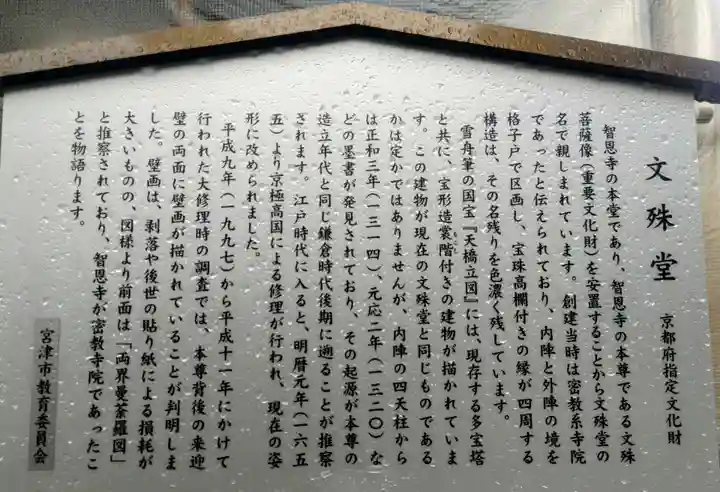 文殊堂
京都府指定文化財
智恩寺の本堂であり、智恩寺の本尊である文殊
菩薩像（重要文化財）を安置することから文殊堂の
名で親しまれています。創建当時は密教系寺院
であったと伝えられており、内陣と外陣の境を
格子戸で区画し、宝珠高欄付きの縁が四周する
構造は、その名残りを色濃く残しています。
雪舟筆の国宝『天橋立図』には、現存する多宝塔
と共に、宝形造裳階付きの建物が描かれていま
す。この建物が現在の文殊堂と同じものである
かは定かではありませんが、内陣の四天柱から
は正和三年（一三一四）、元応二年（一三二〇）な
どの墨書が発見されており、その起源が本尊の
造立年代と同じ鎌倉時代後期に遡ることが推察
されます。江戸時代に入ると、明暦元年（一六五
五）より京極高国による修理が行われ、現在の姿
形に改められました。
平成九年（一九九七）から平成十一年にかけて
行われた大修理時の調査では、本尊背後の来迎
壁の両面に壁画が描かれていることが判明しま
した。壁画は、剥落や後世の貼り紙による損耗が
大きいものの、図様より前面は「両界曼荼羅図」
と推察されており、智恩寺が密教寺院であったこ
とを物語ります。
宮津市教育委員会